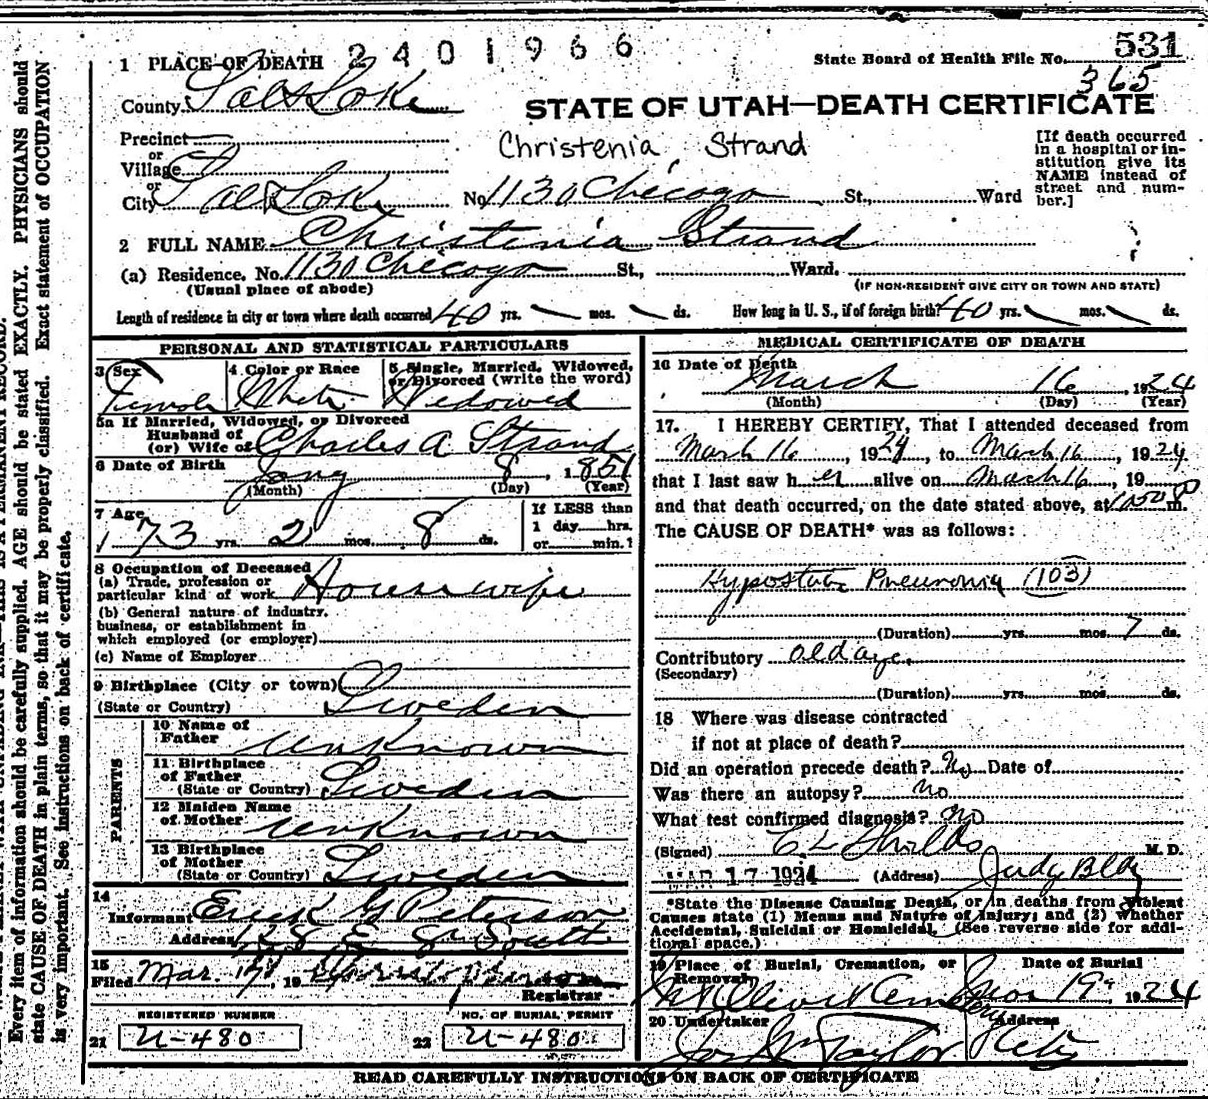 2401966
531
State Board of Health File No.
365
1 PLACE OF DEATH
County Salt Lake
STATE OF UTAH—DEATH CERTIFICATE
Precinct
or
Village
or
City Salt Lake
Christenia Strand
No. 1130 Chicago St., Ward
[If death occurred
in a hospital or in-
stitution give its
NAME instead of
street and num-
ber.]
2 FULL NAME Christenia Strand
(a) Residence. No. 1130 Chicago St., Ward.
(Usual place of abode)
(IF NON-RESIDENT GIVE CITY OR TOWN AND STATE)
Length of residence in city or town where death occurred 40 yrs. mos. ds. How long in U. S., if of foreign birth? 40 yrs. mos. ds.
PERSONAL AND STATISTICAL PARTICULARS
3 Sex
Female
4 Color or Race
White
5 Single, Married, Widowed,
or Divorced (write the word)
Widowed
5a If Married, Widowed, or Divorced
Husband of
(or) Wife of Charles A Strand
6 Date of Birth
Jany 8, 1851
(Month) (Day) (Year)
7 Age
73 yrs. 2 mos. 8 ds.
If LESS than
1 day hrs.
or min.?
8 Occupation of Deceased
(a) Trade, profession or
particular kind of work Housewife
(b) General nature of industry,
business, or establishment in
which employed (or employer)
(c) Name of Employer
9 Birthplace (City or town)
(State or Country) Sweden
PARENTS
10 Name of
Father Unknown
11 Birthplace
of Father
(State or Country) Sweden
12 Maiden Name
of Mother Unknown
13 Birthplace
of Mother
(State or Country) Sweden
14
Informant Erick G Peterson
Address 128 E 8th South
15
Filed Mar. 17, 19
Registrar
REGISTERED NUMBER
21 U-480
NO. OF BURIAL PERMIT
22 U-480
MEDICAL CERTIFICATE OF DEATH
16 Date of Death
March 16 1924
(Month) (Day) (Year)
17. I HEREBY CERTIFY, That I attended deceased from
March 16, 1924, to March 16, 1924
that I last saw her alive on March 16, 19
and that death occurred, on the date stated above, at m.
The CAUSE OF DEATH* was as follows:
Hypostatic Pneumonia (103)
(Duration) yrs. mos. 7 ds.
Contributory old age.
(Secondary)
(Duration) yrs. mos. ds.
18 Where was disease contracted
if not at place of death?
Did an operation precede death? No Date of
Was there an autopsy? No
What test confirmed diagnosis? No
(Signed) C L Shields M. D.
MAR 17 1924 (Address) Judge Bldg
*State the Disease Causing Death, or in deaths from Violent
Causes state (1) Means and Nature of Injury; and (2) whether
Accidental, Suicidal or Homicidal. (See reverse side for addi-
tional space.)
19 Place of Burial, Cremation, or
Removal
Mt Olivet Cemetery
Date of Burial
Mar 19, 1924
20 Undertaker
Jos Wm Taylor
Address
City
READ CAREFULLY INSTRUCTIONS ON BACK OF CERTIFICATE
Every item of information should be carefully supplied. AGE should be stated EXACTLY. PHYSICIANS should
state CAUSE OF DEATH in plain terms, so that it may be properly classified. Exact statement of OCCUPATION
is very important. See instructions on back of certificate.